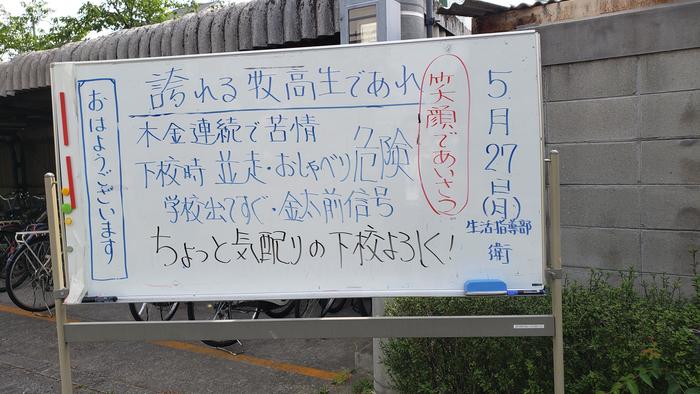 5月27日(月)
生活指導部
衛
笑顔であいさつ
誇れる牧高生であれ
木金連続で苦情
下校時 並走・おしゃべり 危険
学校出てすぐ・金太前信号
ちょっと気配りの下校よろしく!
おはようございます